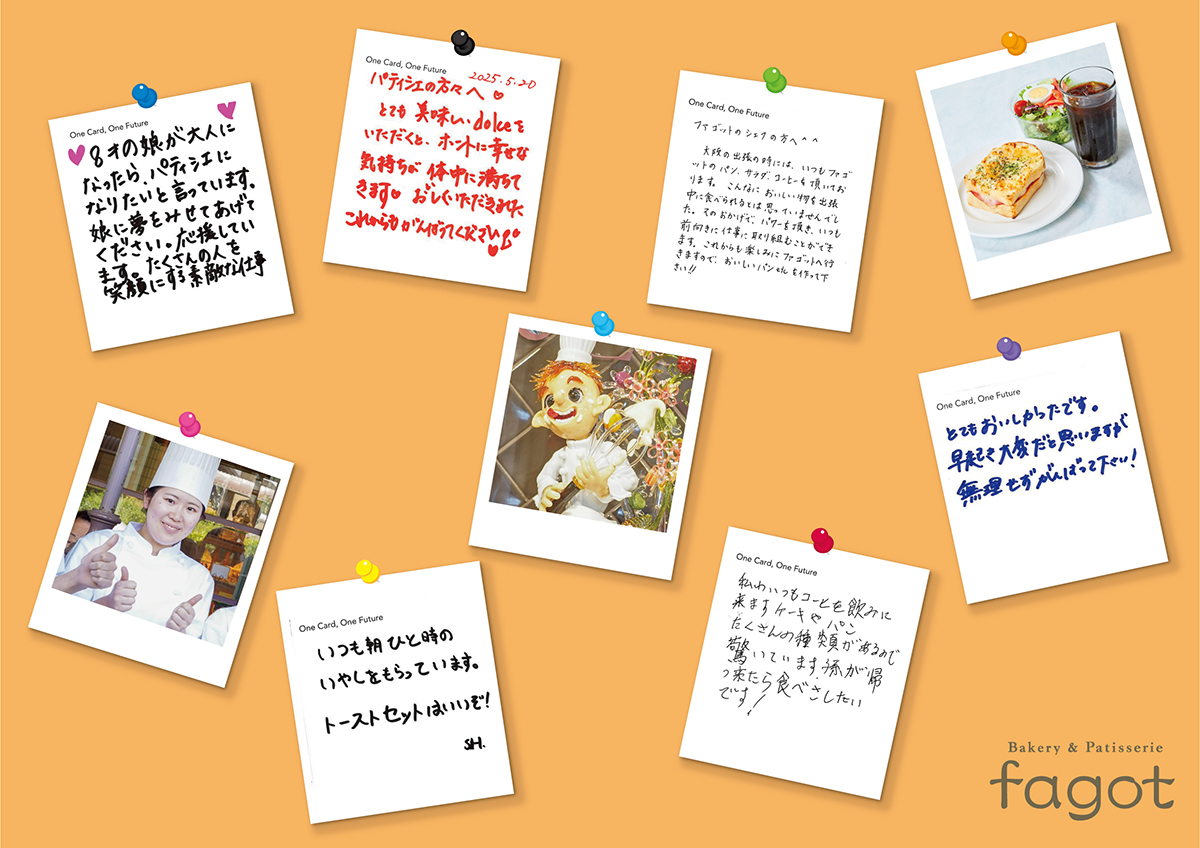 One Card, One Future
8才の娘が大人に
なったら、パティシエに
なりたいと言っています。
娘に夢をみせてあげて
ください。応援してい
ます。たくさんの人を
笑顔にする素敵な仕事
One Card, One Future
2025.5.20
パティシエの方々へ
とても美味しいdolceを
いただくと、ホントに幸せな
気持ちが体中に満ちて
きます おいしくいただきました
これからもがんばってください
One Card, One Future
ファゴットのシェフの方へ^^
大阪の出張の時には、いつもファゴ
ットのパン、サラダ、コーヒーを頂いてお
ります。こんなにおいしい物を出張
中に食べられるとは思っていませんでし
た。そのおかげで、パワーを頂き、いつも
前向きに仕事に取り組むことができ
ます。これからも楽しみにファゴットへ行
きますので、おいしいパンを作って下
さい!!
One Card, One Future
とてもおいしかったです。
早起き大変だと思いますが
無理せずがんばって下さい!
One Card, One Future
いつも朝ひと時の
いやしをもらっています。
トーストセットはいいぞ!
SH.
One Card, One Future
私わいつもコーヒを飲みに
来ますケーキやパン
たくさんの種類があるので
驚いています.孫が帰
って来たら食べさしたい
です!
Bakery & Patisserie
fagot